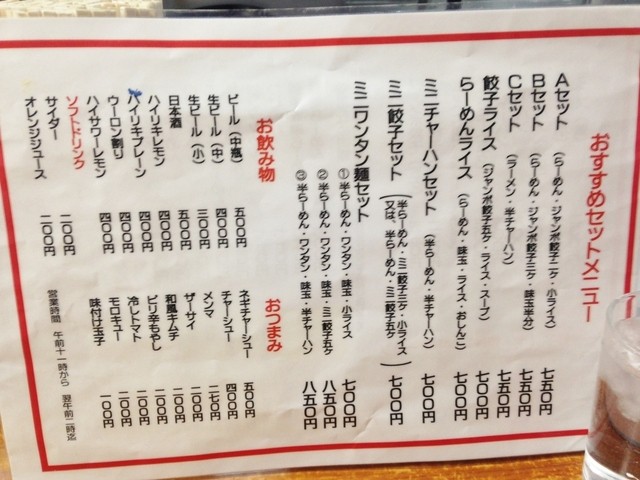 おすすめセットメニュー
Aセット (らーめん・ジャンボ餃子二ヶ・小ライス) 七五〇円
Bセット (らーめん・ジャンボ餃子三ヶ・味玉半分) 七五〇円
Cセット (ラーメン・半チャーハン) 七五〇円
餃子ライス (ジャンボ餃子五ヶ・ライス・スープ) 七〇〇円
らーめんライス (らーめん・味玉・ライス・おしんこ) 七〇〇円
ミニチャーハンセット (半らーめん・半チャーハン) 七〇〇円
ミニ餃子セット (半らーめん・ミニ餃子三ヶ・小ライス 又は、半らーめん・ミニ餃子五ヶ) 七〇〇円
ミニワンタン麺セット
①半らーめん・ワンタン・味玉・小ライス 七〇〇円
②半らーめん・ワンタン・味玉・ミニ餃子五ヶ 八五〇円
③半らーめん・ワンタン・味玉・半チャーハン 八五〇円
お飲み物
ビール(中瓶) 五〇〇円
生ビール(中) 四〇〇円
生ビール(小) 三〇〇円
日本酒 五〇〇円
ハイリキレモン 四〇〇円
ハイリキプレーン 四〇〇円
ウーロン割り 四〇〇円
ハイサワーレモン 四〇〇円
ソフトドリンク
サイダー 二〇〇円
オレンジジュース 二〇〇円
おつまみ
ネギチャーシュー 五〇〇円
チャーシュー 四〇〇円
メンマ 二七〇円
ザーサイ 二〇〇円
和風キムチ 二〇〇円
ピリ辛もやし 二〇〇円
冷しトマト 二〇〇円
モロキュー 二〇〇円
味付け玉子 一〇〇円
営業時間 午前十一時から 翌午前二時迄